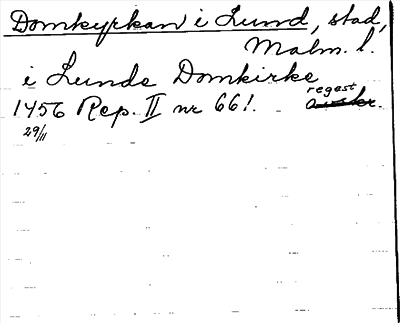 Domkyrkan i Lund, stad,
Malm. l.
i Lunde Domkirke
regest
1456 Rep. II nr 66!. avskr.
29/11